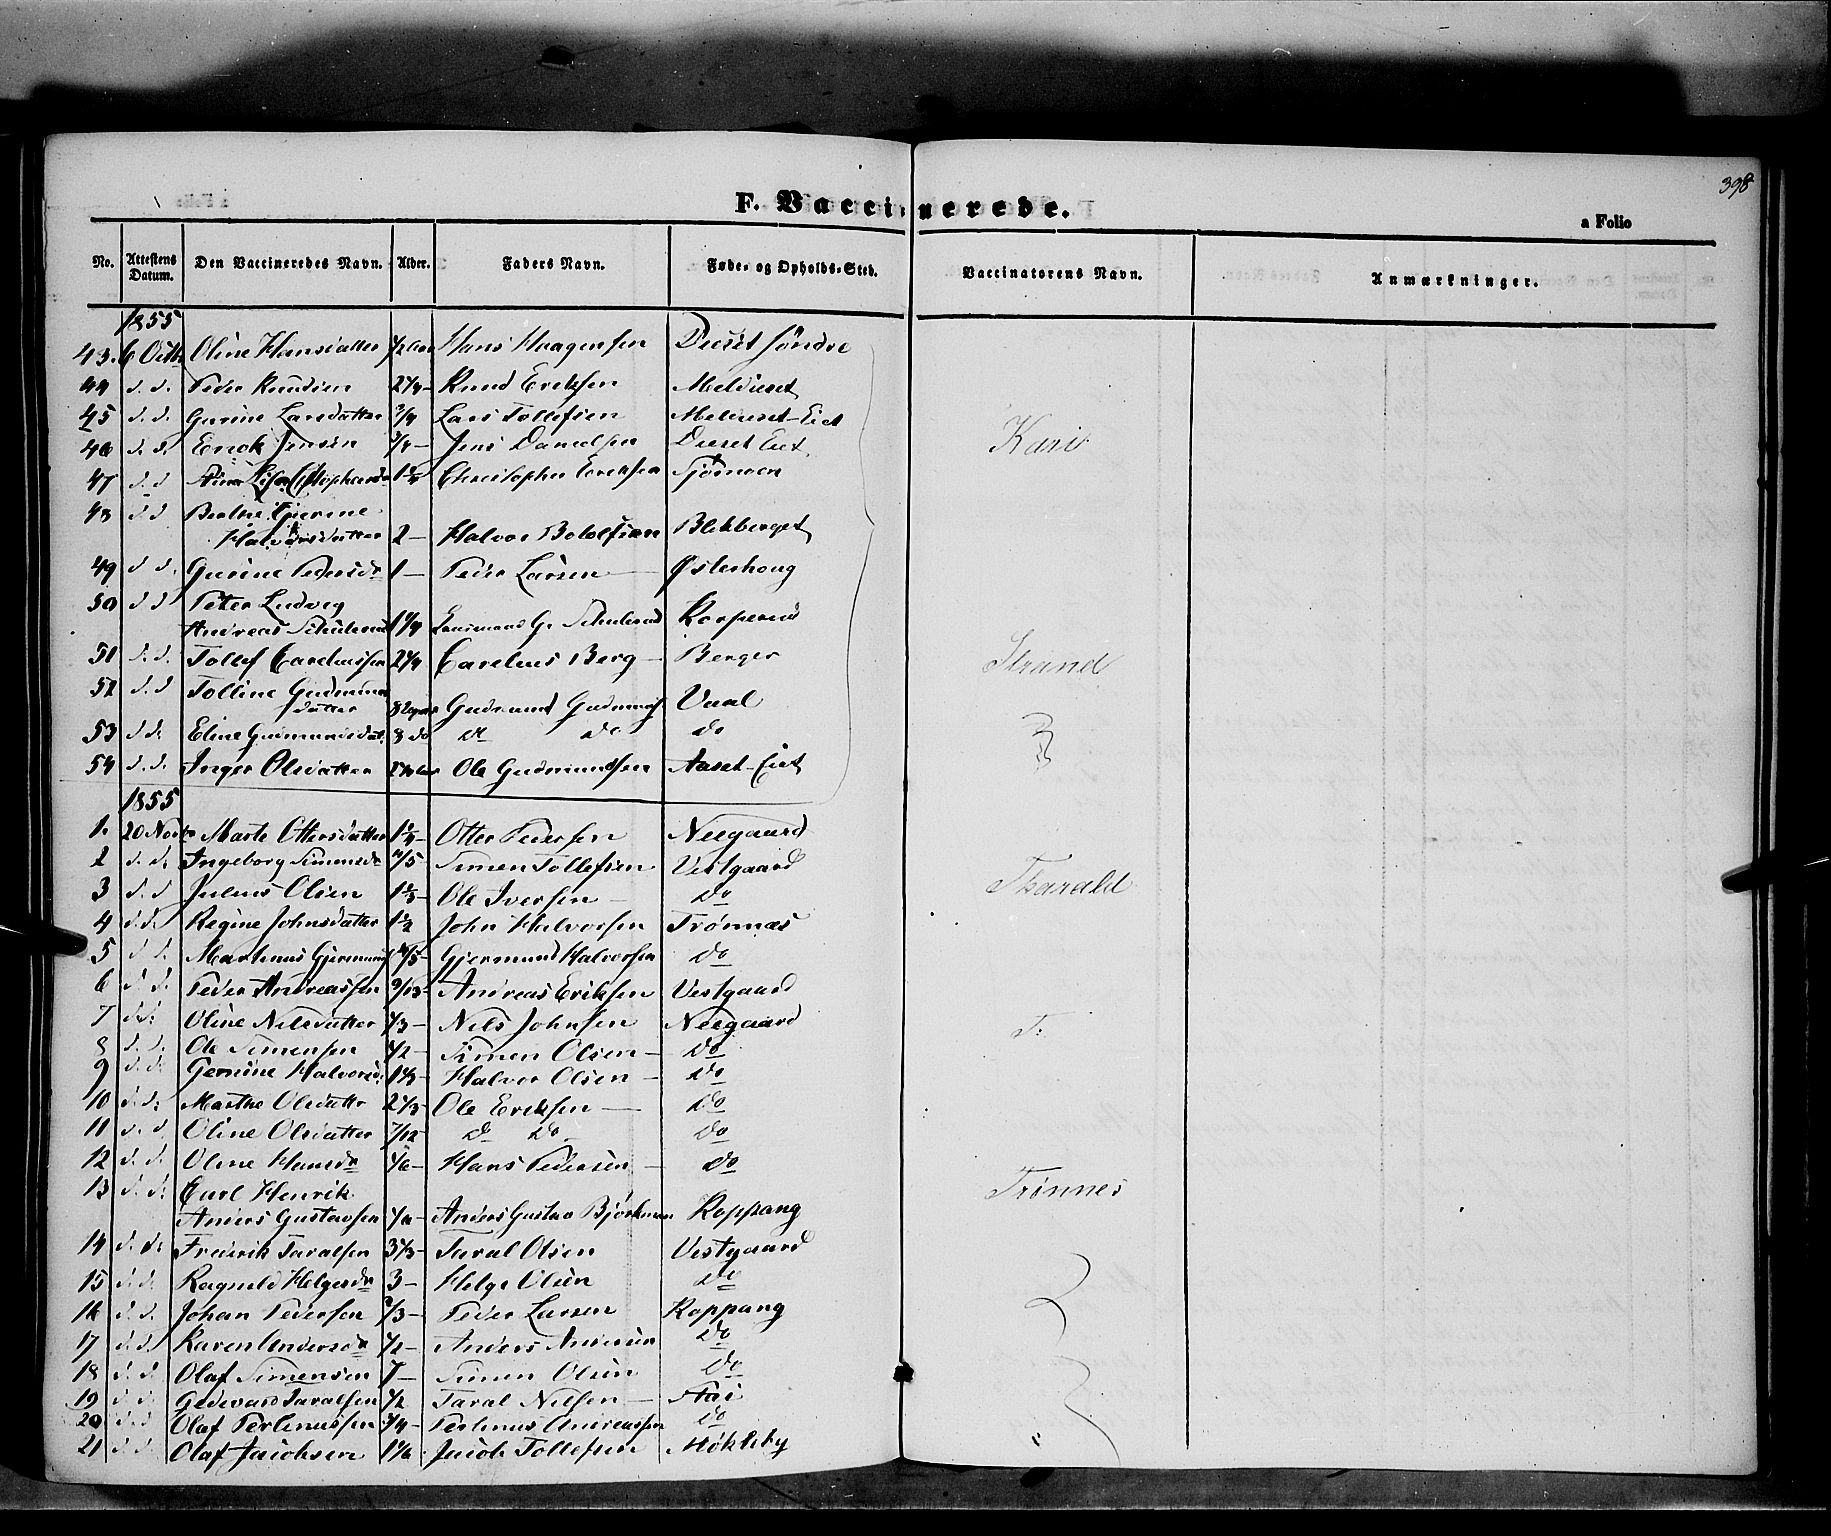 398
F. Vaccinerede.
a Folio
No. Attestens Datum. Den Vaccineredes Navn. Alder. Faders Navn. Føde- og Opholds-Sted. Vaccinatorens Navn. Anmærkninger.
1855
43. 6 Octb Oline Hansdatter 1/2 Aar Hans Haagensen Deset søndre
44 d. d. Peder Knudsen 2 1/4 - Knud Eriksen Meldeset
45 d. d. Gurine Larsdatter 3/4 Lars Tollefsen Meldeset-Eiet
46 d. d. Erick Jensen 3/4 - Jens Danielsen Deset Eiet Kari
47 d. d. 1 1/4 Christopher Ericksen
48 d. d. Berthe
Halvorsdatter 2 - Halvor Bolofsen Blekberget
49 d. d. Gurine Pedersdr 1 - Peder Larsen Østerhoug
50 d. d. Peter Ludvig
Andreas 1 1/4
51 d. d. Tollef Careliussen 2 1/4 Carelius Berg - Berger Strand
52 d. d. Tolline Gudmunds
datter 8 Uger Gudmund Gudmunds Vaal
53 d. d. Eline Gudmundsdat. 8 do do do do
54 d. d. Inger Olsdatter Ole Gudmundsen Aaset-Eiet
1855
1. 20 Novbr Marte Ottersdatter 1 1/4 - Otter Pedersen Neegaard
2 d. d. Ingeborg Simensdr /5 - Simen Tollefsen Vestgaard
3 d. d. Julius Olsen 1 1/3 - Ole Iversen - do Tharald
4 d. d. Regine Johnsdatter 1 1/2 John Halvorsen Trønnæs
5 d. d. Martinus Gjermunds /5 - Gjermund Halvorsen do
6 d. d. Peder Andreassen - Andreas Eriksen Vestgaard
7 d. d. Oline Nilsdatter 1/3 - Nils Johnsen Neegaard T:
8 d. d. Ole Simensen 1/2 - Simen Olsen - do
9 d. d. Gurine Halvorsd. 1 1/3 - Halvor Olsen - do
10 d. d. Marthe Olsdatter 2 1/3 - Ole Eriksen - do
11 d. d. Oline Olsdatter 7/12 - do do do
12 d. d. Oline Hansdr 1/6 - Hans Pedersen - do
13 d. d. Carl Henrik Trønnes
Anders Gustavsen - Anders Gustav Björkman Koppang
14 d. d. Fredrik Taralsen 3 1/3 - Taral Olsen Vestgaard
15 d. d. Ragnild Helgesdr 3 - Helge Olsen do
16 d. d. Johan Pedersen /3 - Peder Larsen Koppang
17 d. d. Karen Andersdr 1/2 - Anders Andersen do
18 d. d. Olaf Simensen 7 - Simen Olsen do
19 d. d. Taralsen 1/2 Taral Nilsen -
20 d. d. Olaf Perlinussen 3/4 - Perlinus Andreassen do
21 d. d. Olaf Jacobsen 1 1/6 - Jacob Tollefsen Møkleby